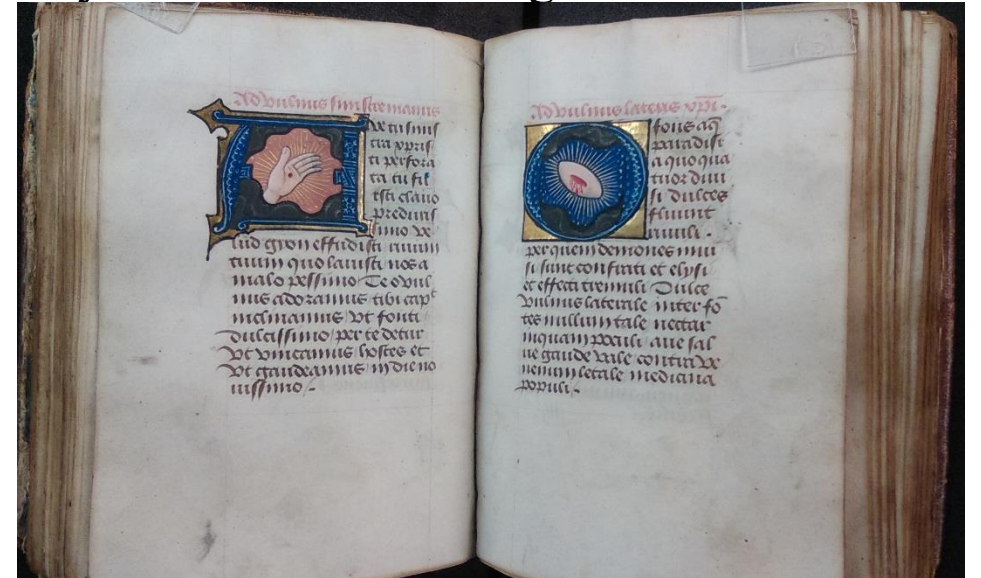 Ad vulnus sinistre manus
Ave vulnus
tra xpris
ti perfora
ta tu fu
isti clavo
preduris
simo ve
lud gion effudisti rivum
tuum quo lavisti nos a
malo pessimo Te o vul
nus adoramus tibi capt
inclinamus vt fonti
dulcissimo per te detur
vt vincamus hostes et
vt gaudeamus in die no
vissimo
Ad vulnus lateris xpi
O fons aq
paradisi
a quo qua
tuor divi
si dulces
fluunt
rivuli
per quem demones invi
si sunt confrati et elysi
et effecti tremuli Dulce
vulnus laterale inter fo
tes nullum tale nectar
inquam poculi aue sal
ue gaude vale contra ve
nenum letale medicina
populi